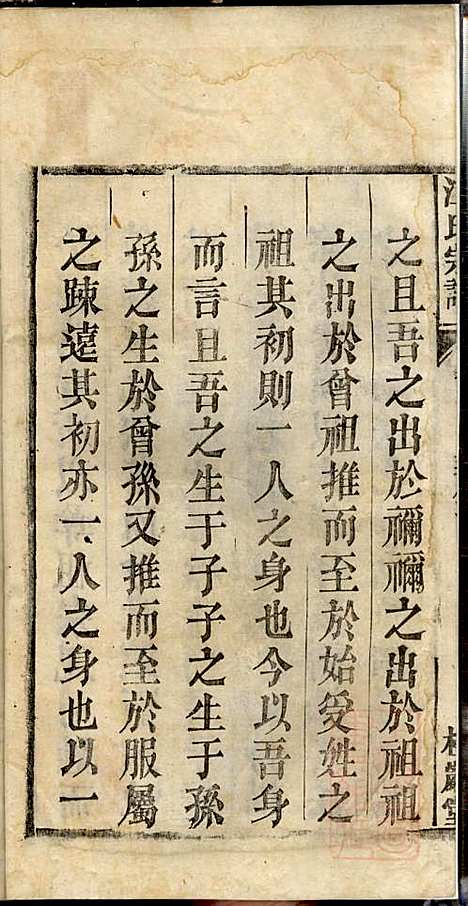 氏宗譜
之且吾之出於禰禰之出於祖祖
之出於曾祖推而至於始受姓之
祖其初則一人之身也今以吾身
而言且吾之生于子子之生于孫
孫之生於曾孫又推而至於服屬
之踈遠其初亦一人之身也以一